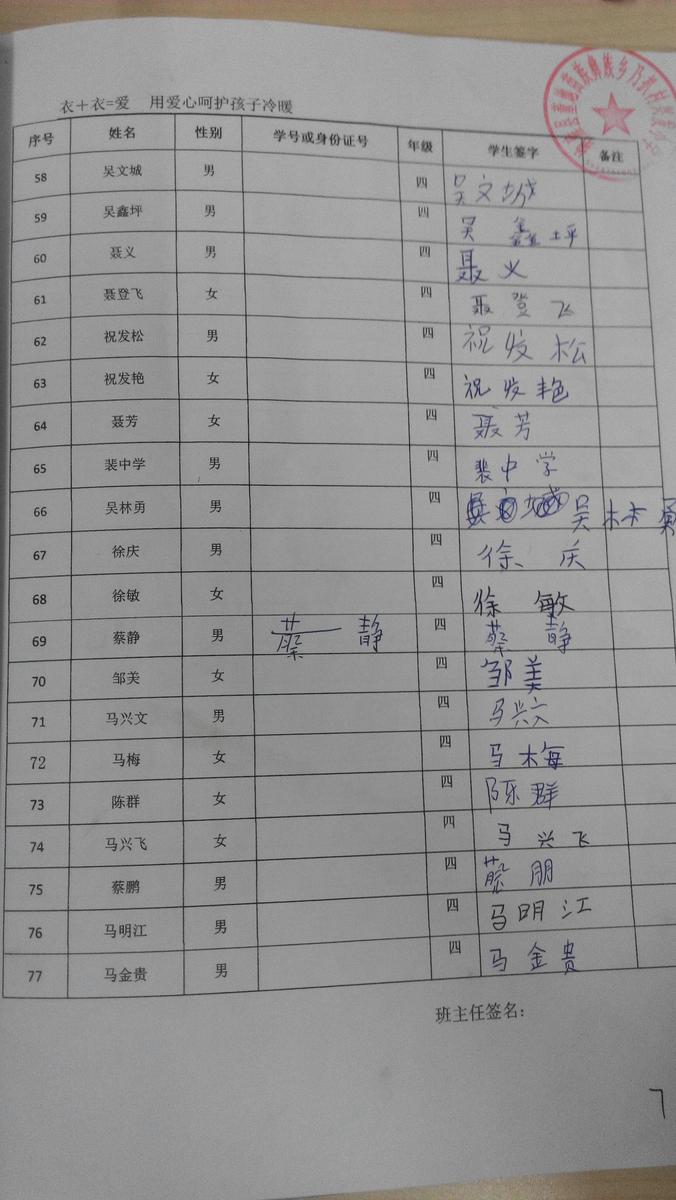 衣+衣=爱 用爱心呵护孩子冷暖
序号 姓名 性别 学号或身份证号 年级 学生签字 备注
58 吴文城 男 四 吴文城
59 吴鑫坪 男 四 吴鑫坪
60 聂义 男 四 聂义
61 聂登飞 女 四 聂登飞
62 祝发松 男 四 祝发松
63 祝发艳 女 四 祝发艳
64 聂芳 女 四 聂芳
65 裴中学 男 四 裴中学
66 吴林勇 男 四 吴林勇
67 徐庆 男 四 徐庆
68 徐敏 女 四 徐敏
69 蔡静 男 蔡静 四 蔡静
70 邹美 女 四 邹美
71 马兴文 男 四 马兴文
72 马梅 女 四 马梅
73 陈群 女 四 陈群
74 马兴飞 女 四 马兴飞
75 蔡鹏 男 四 蔡朋
76 马明江 男 四 马明江
77 马金贵 男 四 马金贵
班主任签名：
7